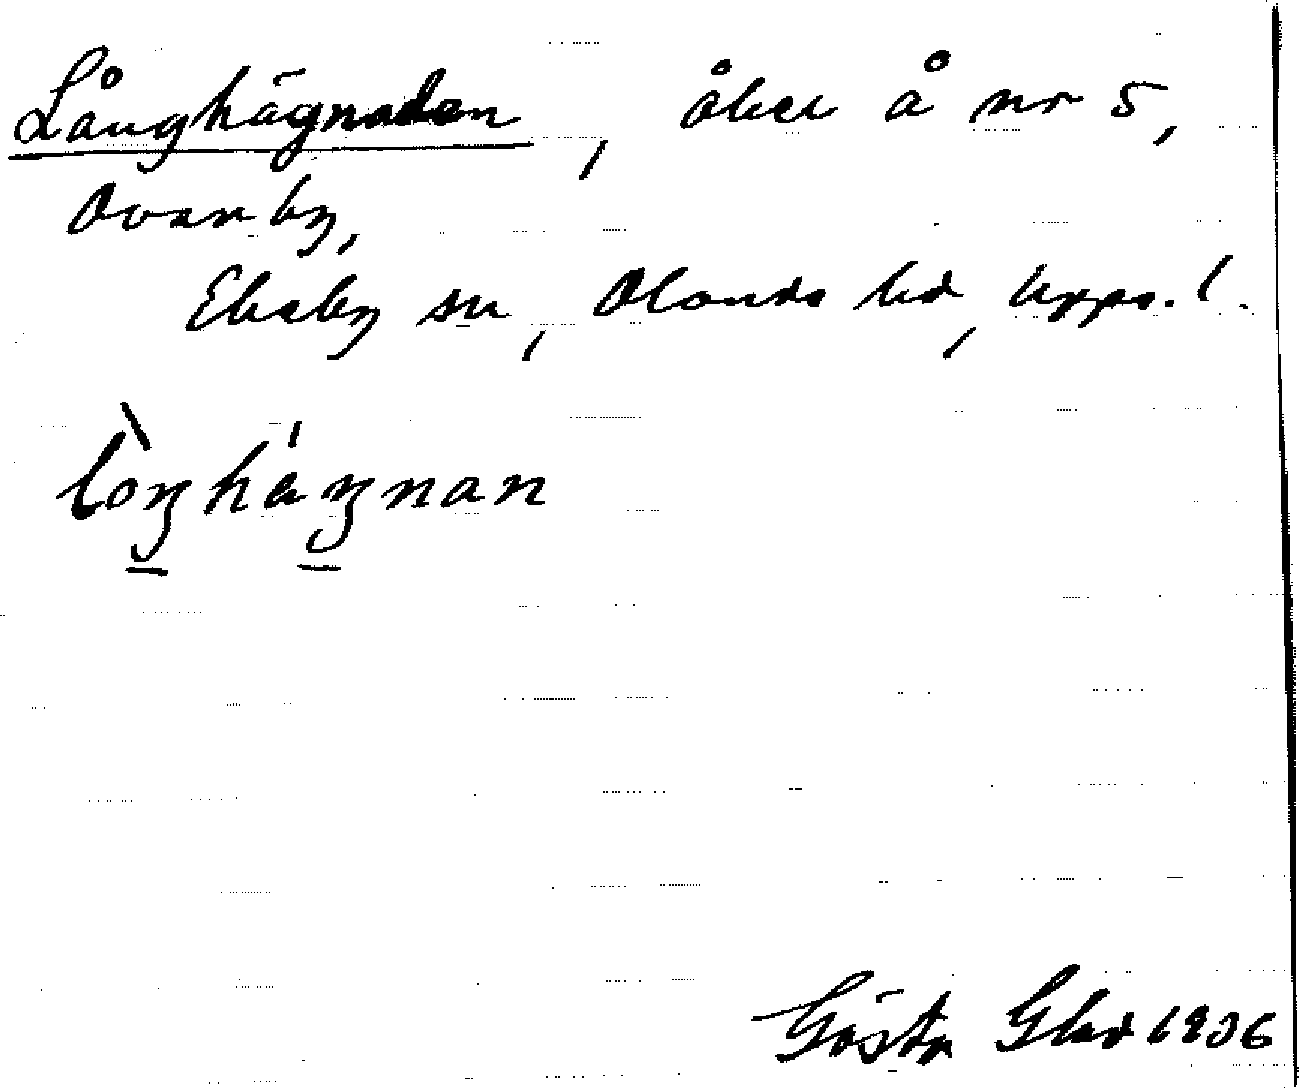 Långhägnaden, åker å nr 5,
Ovanby,
Ekeby sn, Olands hd, Upps. l.
lòŋhá̱ŋnan
Gösta Glad 1936